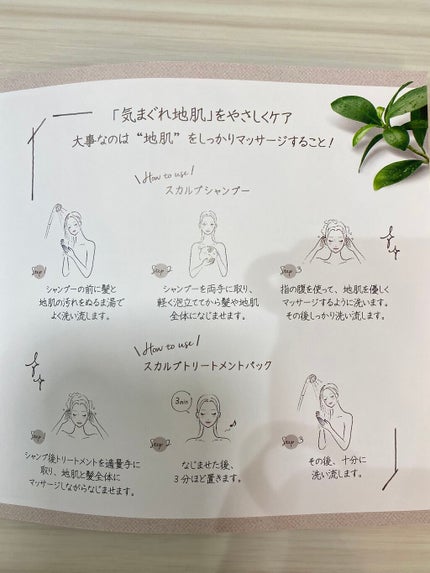 「気まぐれ地肌」をやさしくケア
大事なのは “地肌” をしっかりマッサージすること!
How to use!
スカルプシャンプー
Step 1
シャンプーの前に髪と
地肌の汚れをぬるま湯で
よく洗い流します。
Step 2
シャンプーを両手に取り、
軽く泡立ててから髪や地肌
全体になじませます。
Step 3
指の腹を使って、地肌を優しく
マッサージするように洗います。
その後しっかり洗い流します。
How to use!
スカルプトリートメントパック
Step 1
シャンプ後トリートメントを適量手に
取り、地肌と髪全体に
マッサージしながらなじませます。
3min!
Step 2
なじませた後、
3分ほど置きます。
Step 3
その後、十分に
洗い流します。